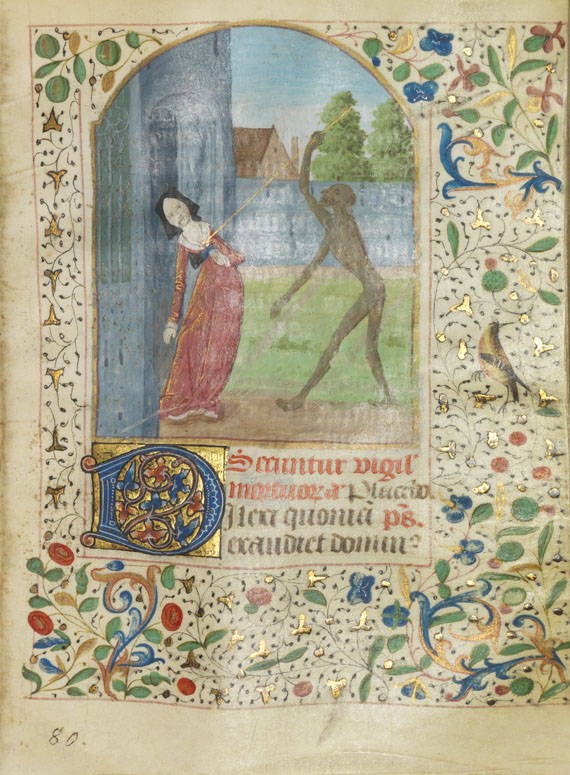 Secuntur vigil'
mortuor. añ Placebo.
Dilexi quoniã ps.
exaudiet domin9
80.